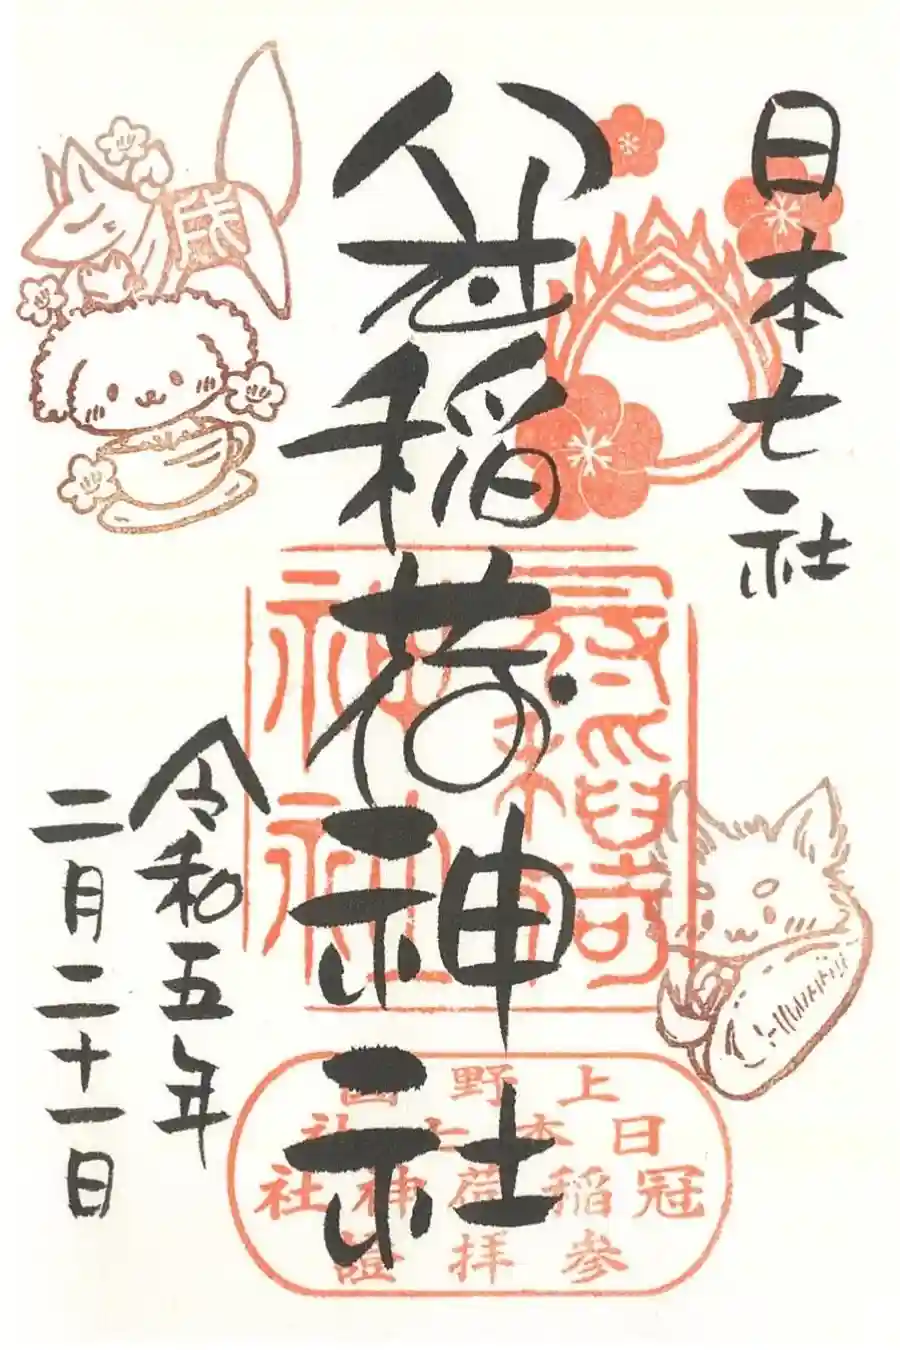 日本七社
冠稲荷神社
令和五年
二月二十一日
上野国
日本七社
冠稲荷神社
参拝證